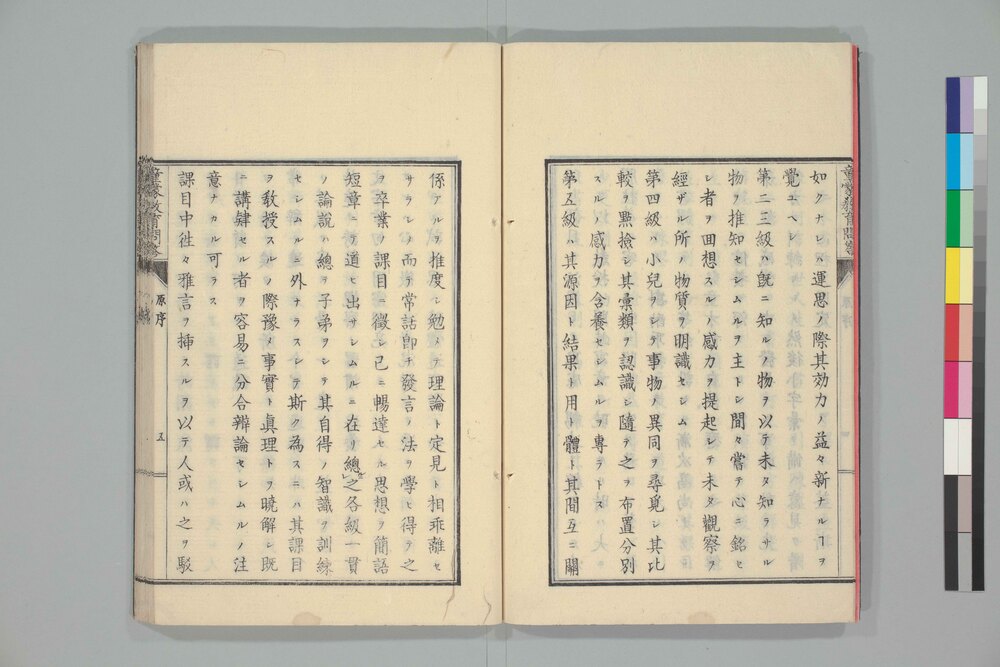 如クナレハ運思ノ際其効力ノ益々新ナルヿヲ
覺ユヘシ
第二三級ハ旣ニ知ルノ物ヲ以テ未タ知ラサル
物ヲ推知セシムルヲ主トシ間々嘗テ心ニ銘セ
シ者ヲ回想スルノ感力ヲ提起シテ未タ觀察ヲ
經ザル所ノ物質ヲ明識セシム
第四級ハ小兒ヲシテ事物ノ異同ヲ尋覓シ其比
較ヲ㸃撿シ其彙類ヲ認識シ隨テ之ヲ布置分別
スルノ感力ヲ含養セシムルヲ專ラトス
第五級ハ其源因ト結果ト用ト體ト其間互ニ關
係アルヲ推度シ勉メテ理論ト定見ト相乖離セ
サランヿヲ而シテ常話卽チ發言ノ法ヲ學ヒ得テ之
ヲ卒業ノ課目ニ徵シ已ニ暢達セル思想ヲ簡語
短章ニテ道ヒ出サシムルニ在リ總之各級一貫
ノ論說ハ總テ子弟ヲシテ其自得ノ智識ヲ訓練
セシムルニ外ナラスシテ斯ク為スニハ其課目
ヲ敎授スルノ際豫メ事實ト眞理トヲ曉解シ旣
ニ講肄セル者ヲ容易ニ分合辨論セシムルノ注
意ナカル可ラス
課目中徃々雅言ヲ挿スルヲ以テ人或ハ之ヲ駁
原序
五